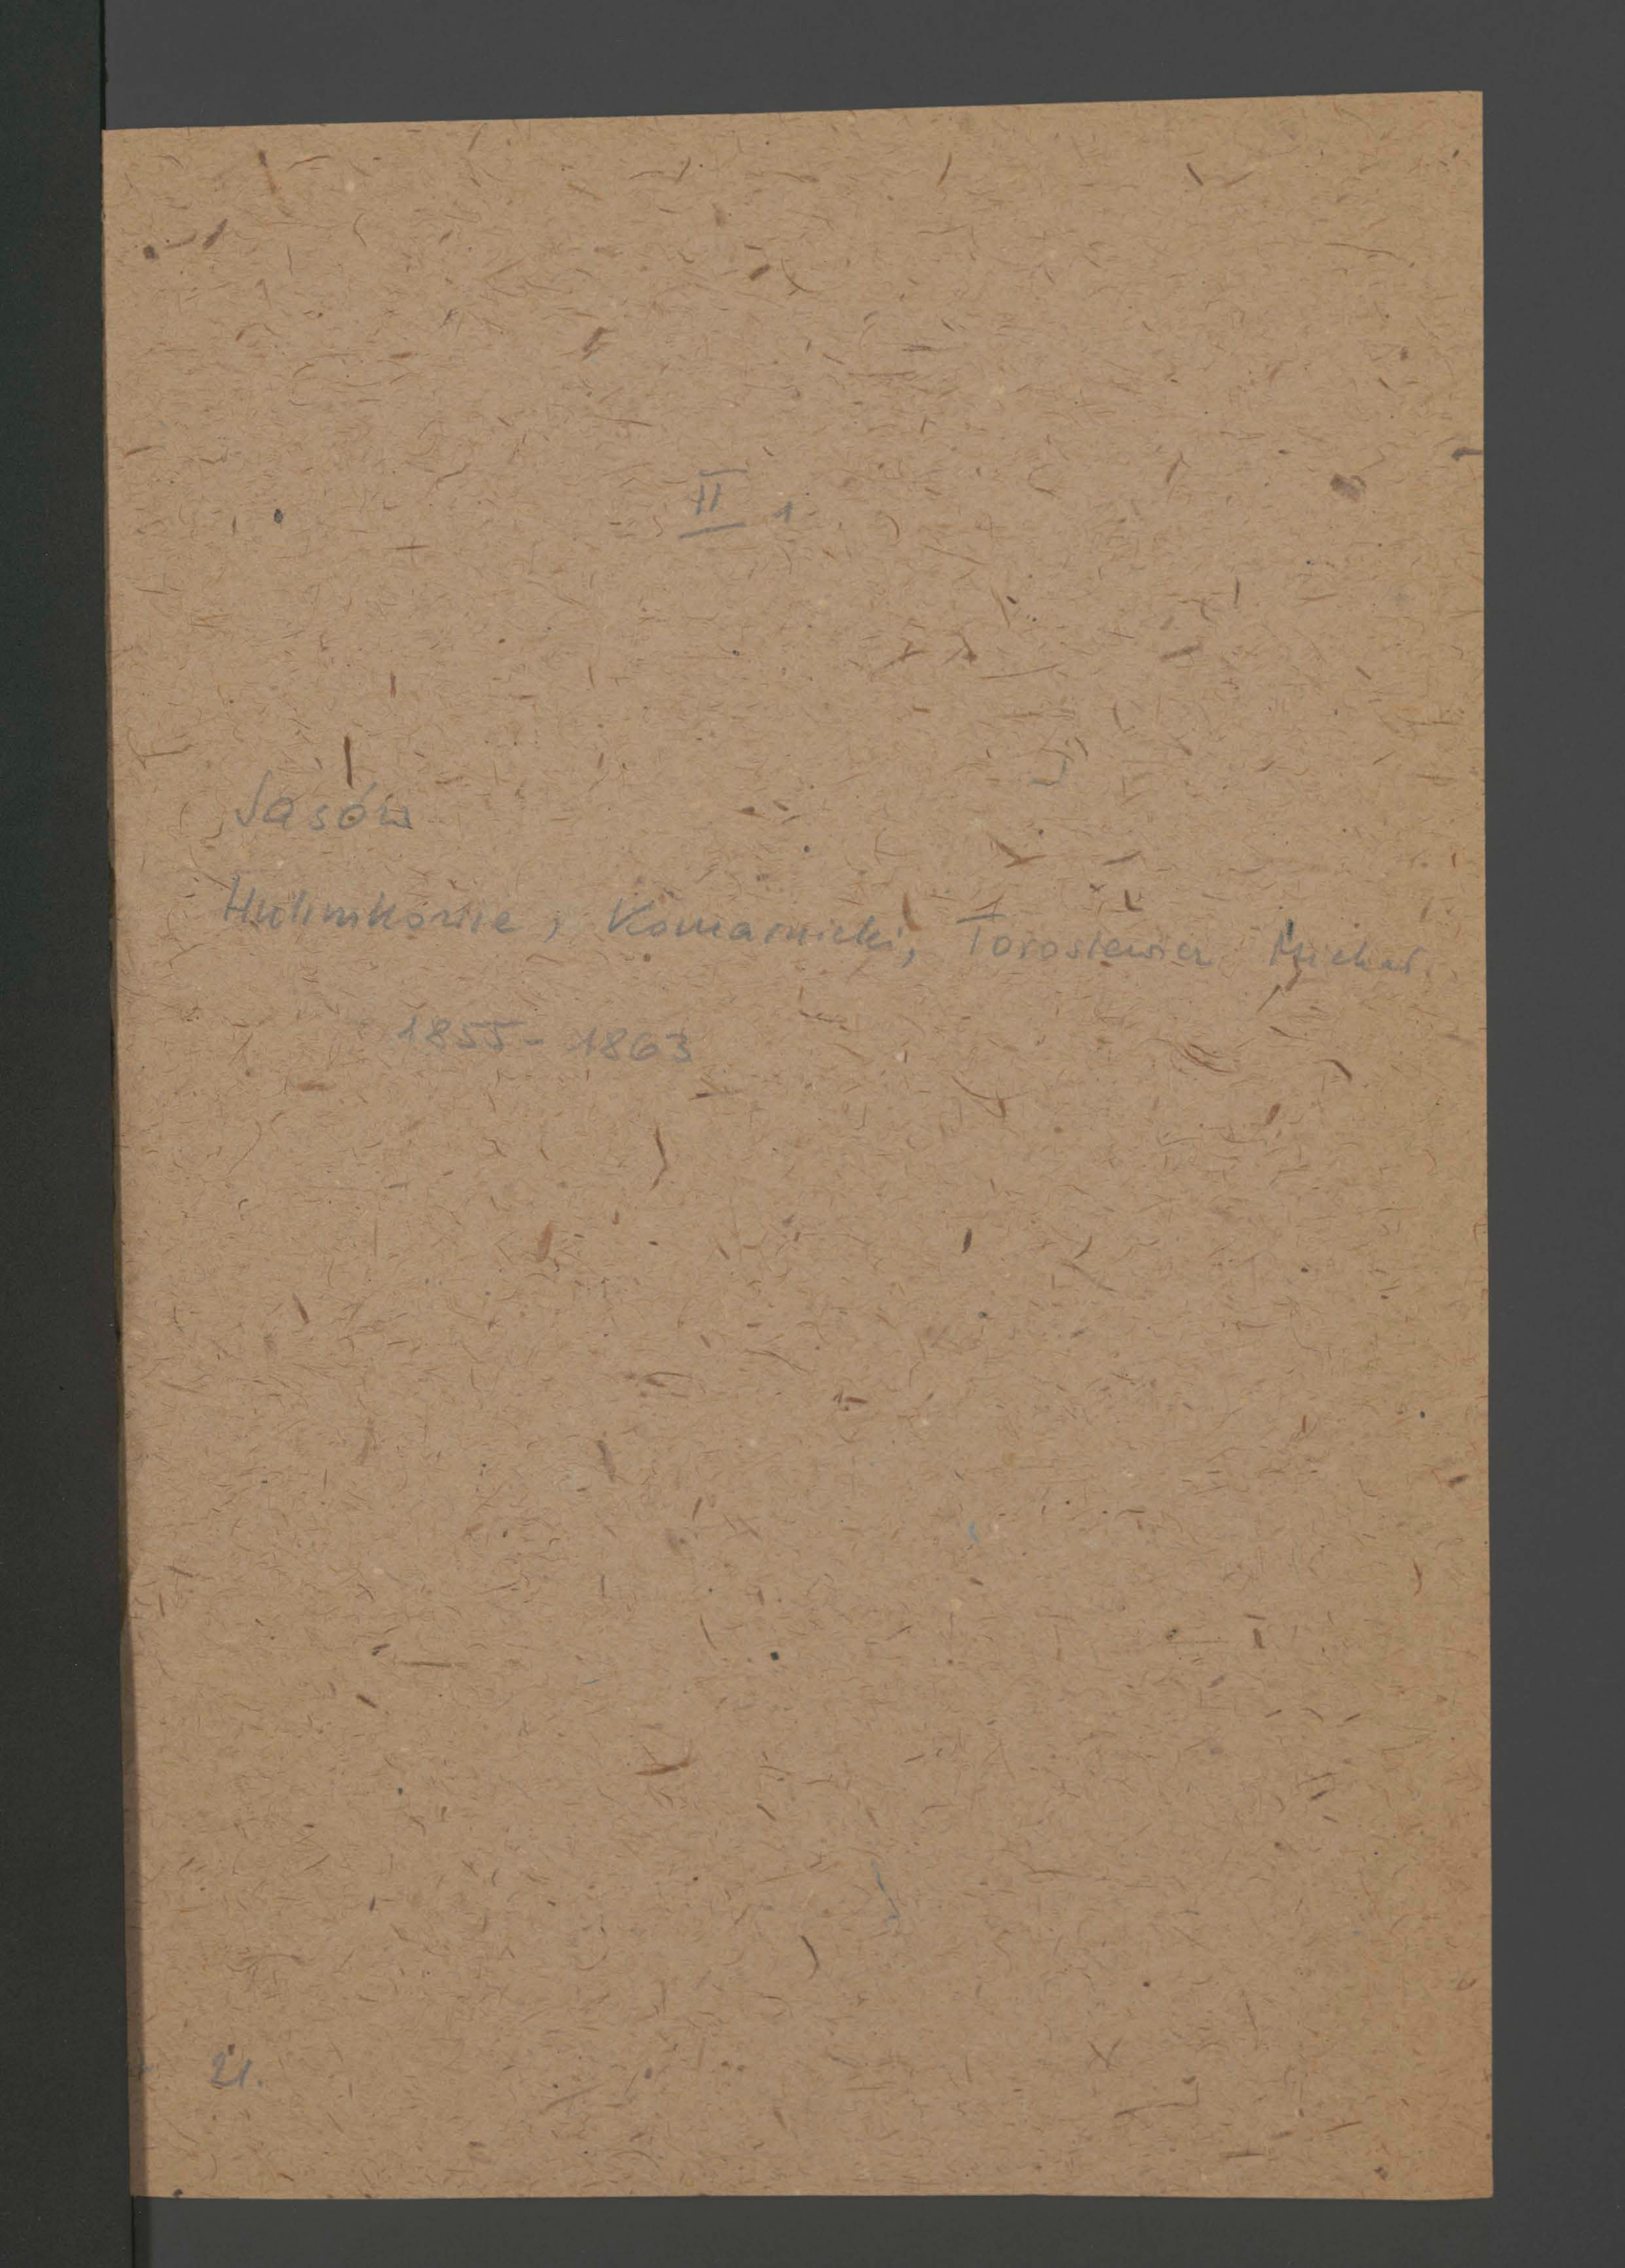 II 1
Sasów
Komarnicki, Torosiewicz Michał.
1855-1863
21.